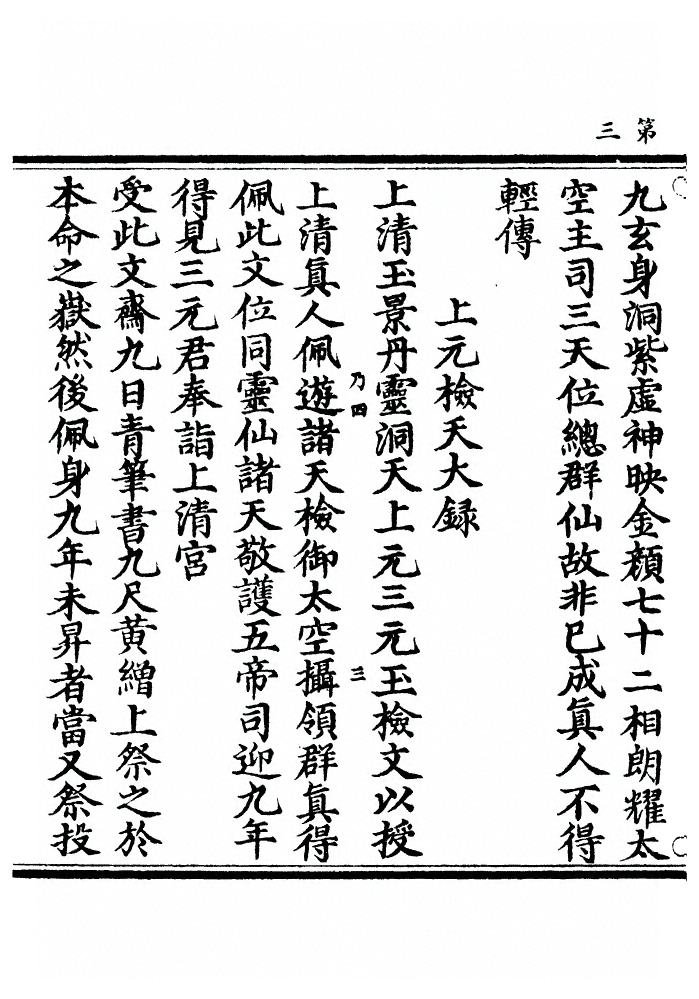 第三
九玄身洞紫虛神映金顏七十二相朗耀太
空主司三天位總群仙故非已成真人不得
輕傳
上元檢天大錄
上清玉景丹靈洞天上元三元玉檢文以授
乃四
三
上清真人佩遊諸天檢御太空攝領群真得
佩此文位同靈仙諸天敬護五帝司迎九年
得見三元君奉詣上清宮
受此文齋九日青筆書九尺黃繒上祭之於
本命之嶽然後佩身九年未昇者當又祭投